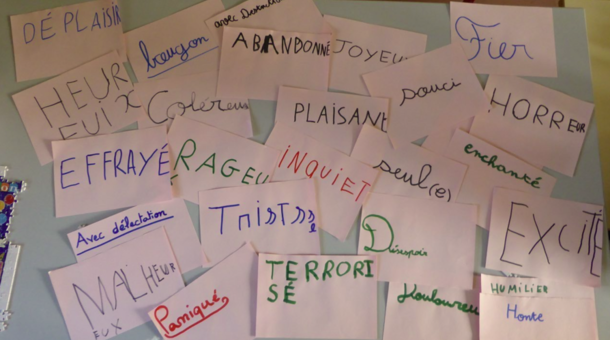 DÉPLAISIR
bougon
avec Desarroi
ABANDONNÉ
JOYEU
Fier
HEUR
EUX
Coléreux
PLAISANT
souci
HORREUR
EFFRAYÉ
RAGEU
INQUIET
seul(e)
enchanté
Avec délectation
TRISTSSE
Désespoir
EXCITÉ
MALHEUR
EUX
Paniqué
TERRORI
SÉ
Douloureu
HUMILIER
Honte